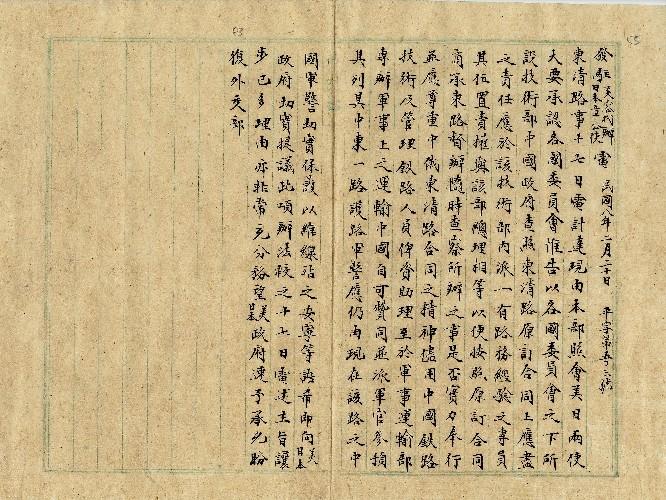 53
55
發駐美容代辦日本莊公使電 民國八年二月二十日 平字第五三號
東清路事十七日電計達現由本部照會美日兩使
大要承認各國委員會惟告以各國委員會之下所
設技術部中國政府查照東清路原訂合同上應盡
之責任應於該技術部內派一有路務經驗之專員
其位置責權與該部總理相等以便按照原訂合同
商承東路督辦隨時查察所辦之事是否實力奉行
並應尊重中俄東清路合同之精神儘用中國鐵路
技術及管理鐵路人員俾資助理至於軍事運輸部
專辦軍事上之運輸中國自可贊同並派軍官參預
其列其中東一路護路軍警應仍由現在該路之中
國軍警切實保護以維線沿之安寧等語希即向美日本
政府切實提議此項辦法較之十七日電述主旨讓
步已多理由亦非常充分務望美日本政府速予承允盼
復外交部